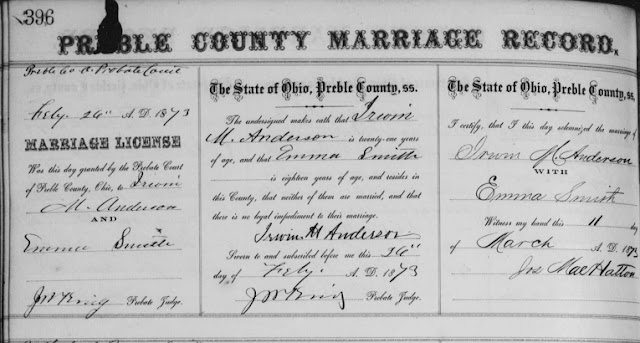 396
PREBLE COUNTY MARRIAGE RECORD.
Preble Co O. Probate Court
Feby. 26" A.D. 1873
MARRIAGE LICENSE
Was this day granted by the Probate Court
of Preble County, Ohio, to Irwin
M. Anderson
AND
Emma Smith
J.W. King Probate Judge.
The State of Ohio, Preble County, ss.
The undersigned makes oath that Irwin
M. Anderson is twenty-one years
of age, and that Emma Smith
is eighteen years of age, and resides in
this County, that neither of them are married, and that
there is no legal impediment to their marriage.
Irwin M Anderson
Sworn to and subscribed before me this 26"
day of Feby. A.D. 1873
J.W. King Probate Judge.
The State of Ohio, Preble County, ss.
I certify, that I this day solemnized the marriage of
Irwin M. Anderson
WITH
Emma Smith
Witness my hand this 11 day
of March A.D. 1873
Jos MacHatton